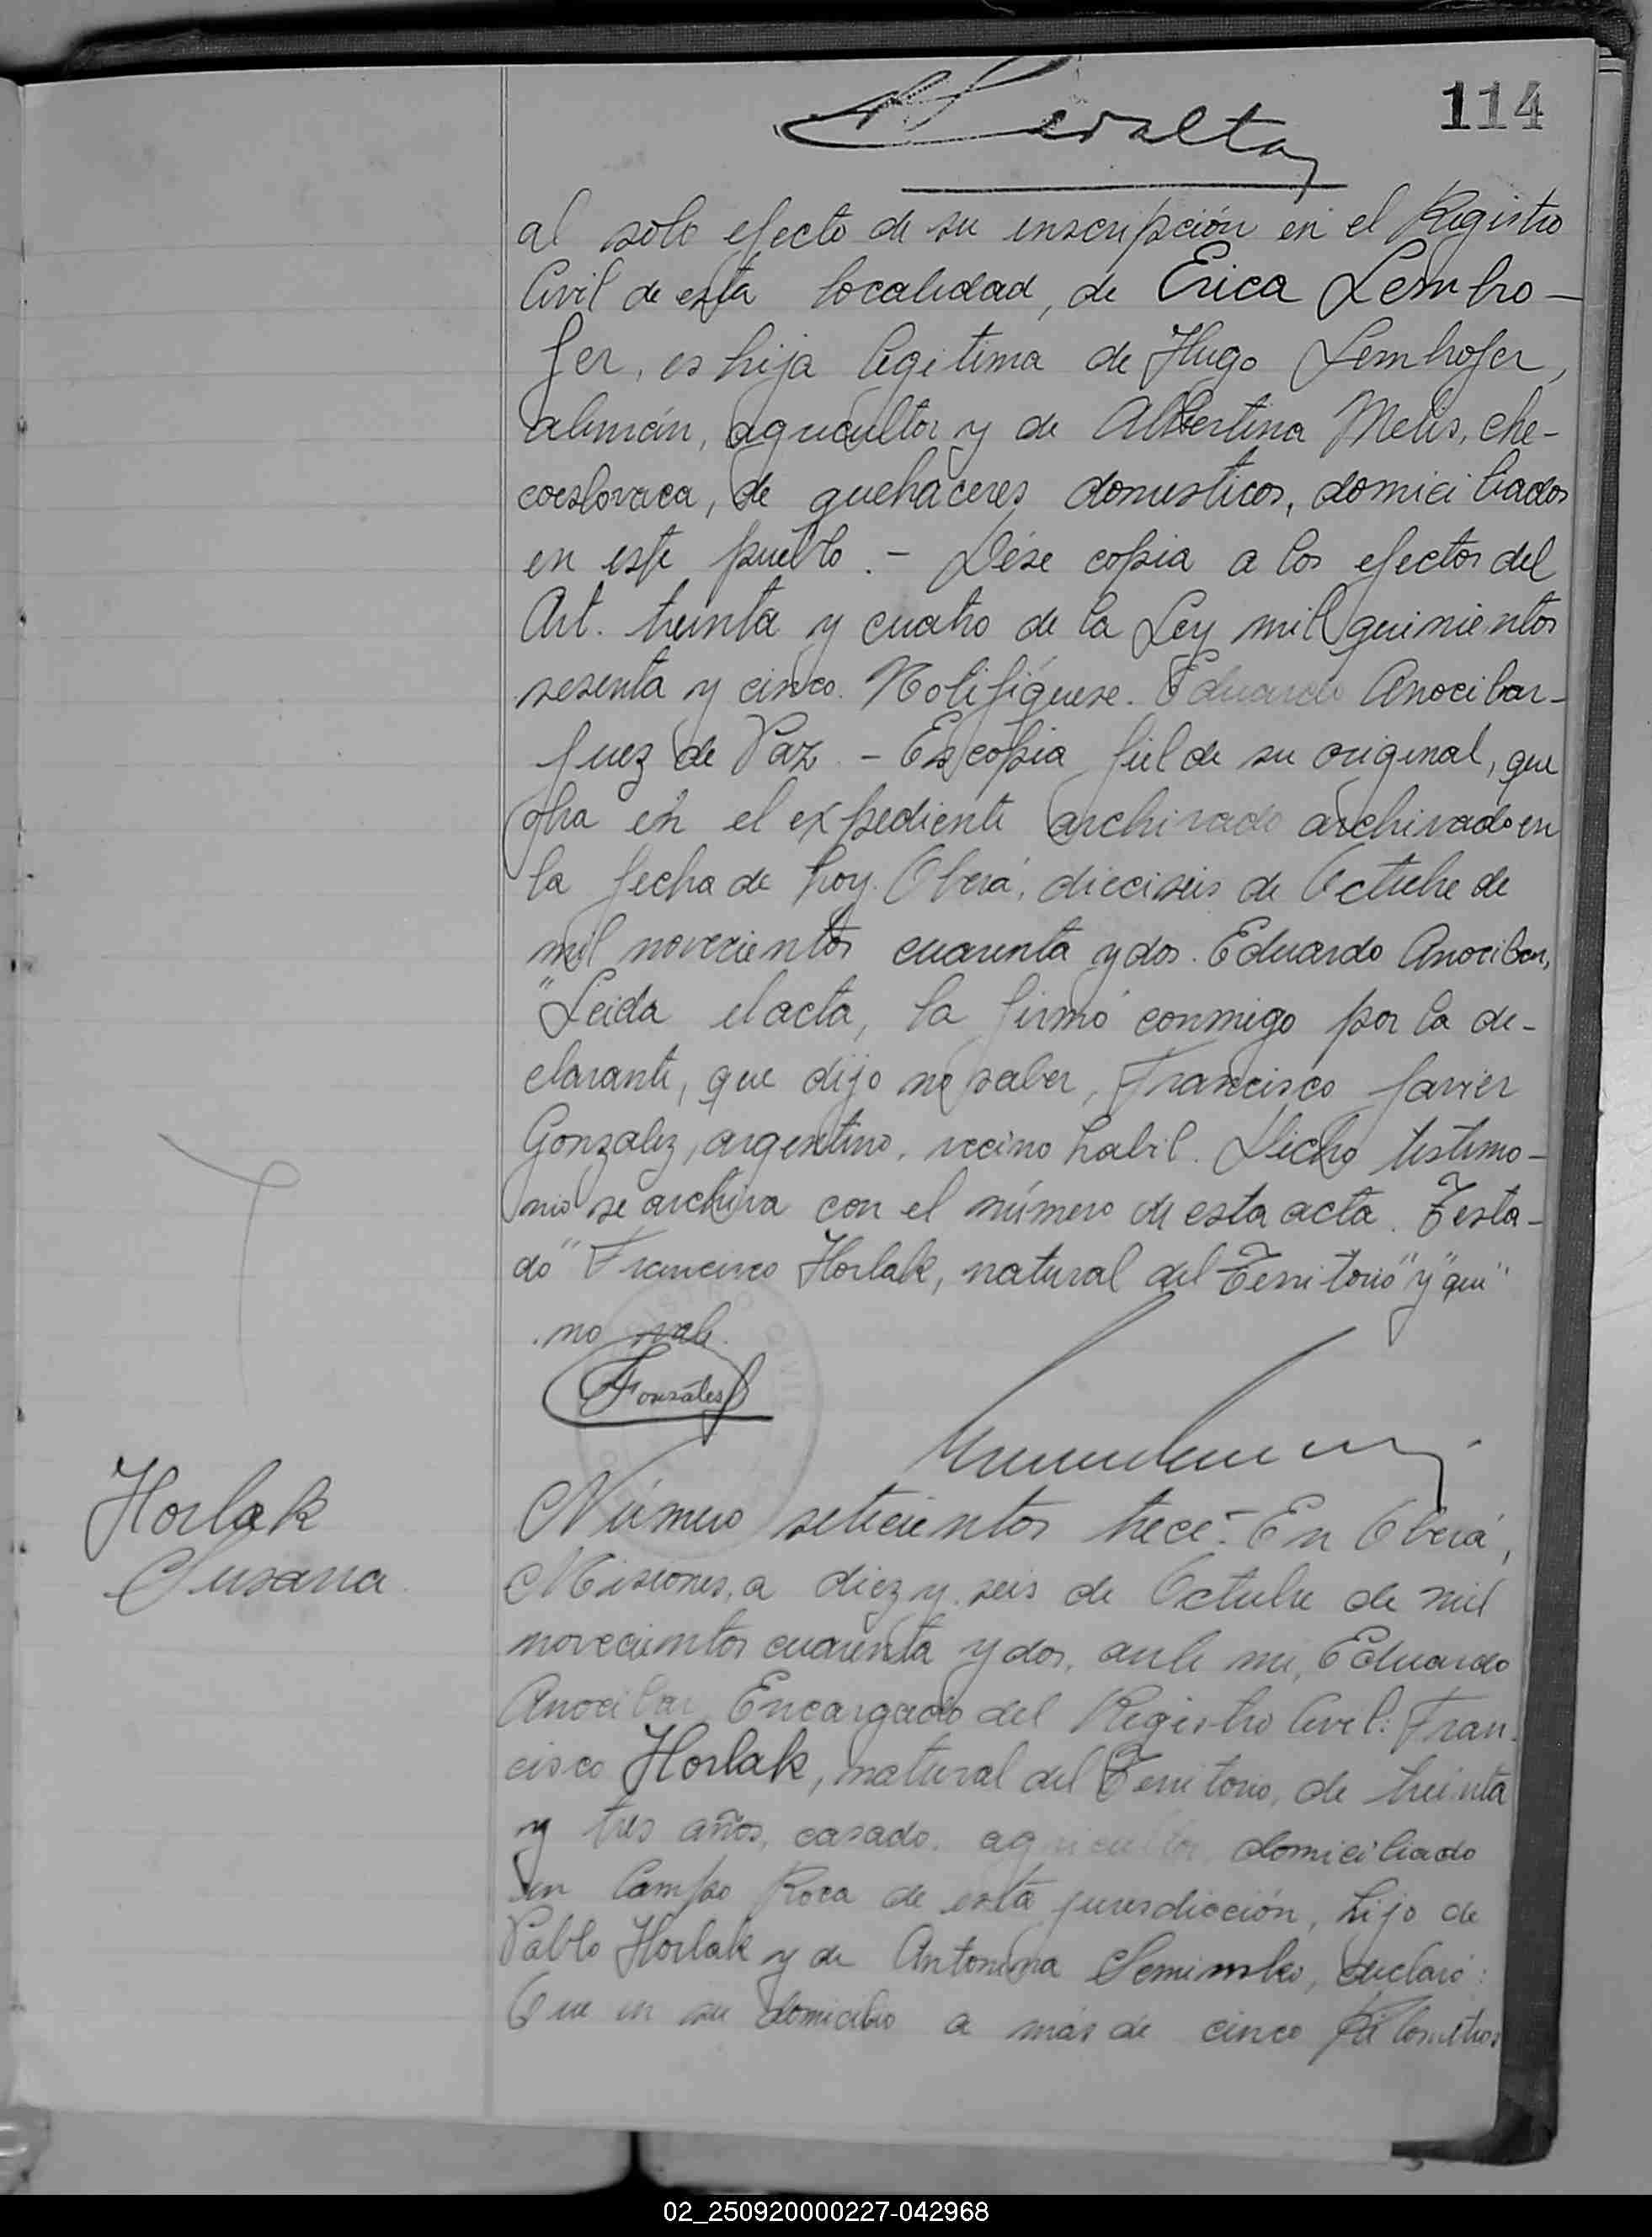 114
Peralta
al solo efecto de su inscripción en el Registro
Civil de esta localidad, de Erica Lemho-
fer, es hija legitima de Hugo Lemhofer,
alemán, agricultor y de Albertina Melis, che-
coeslovaca, de quehaceres domesticos, domiciliados
en este pueblo. - Dése copia a los efectos del
Art. treinta y cuatro de la Ley mil quinientos
sesenta y cinco. Notifíquese. Eduardo Anocibar-
Juez de Paz. - Es copia fiel de su original, que
obra en el expediente archivado archivado en
la fecha de hoy. Oberá, dieciseis de Octubre de
mil novecientos cuarenta y dos. Eduardo Anocibar,
"Leida el acta, la firmó conmigo por la de-
clarante, que dijo no saber, Francisco Javier
Gonzalez, argentino, vecino habil. Dicho testimo-
nio se archiva con el número de esta acta. Testa-
do "Francisco Horlak, natural del Territorio" y "que"
no vale.
FGonzáles
Horlak
Susana
Número setecientos trece.- En Oberá,
Misiones, a diez y seis de Octubre de mil
novecientos cuarenta y dos, ante mi, Eduardo
Anocibar, Encargado del Registro Civil: Fran-
cisco Horlak, natural del Territorio, de treinta
y tres años, casado, agricultor, domiciliado
en Campo Roca de esta jurisdicción, hijo de
Pablo Horlak y de Antonina, declaró:
Que en su domicilio a más de cinco kilometros
02_250920000227-042968